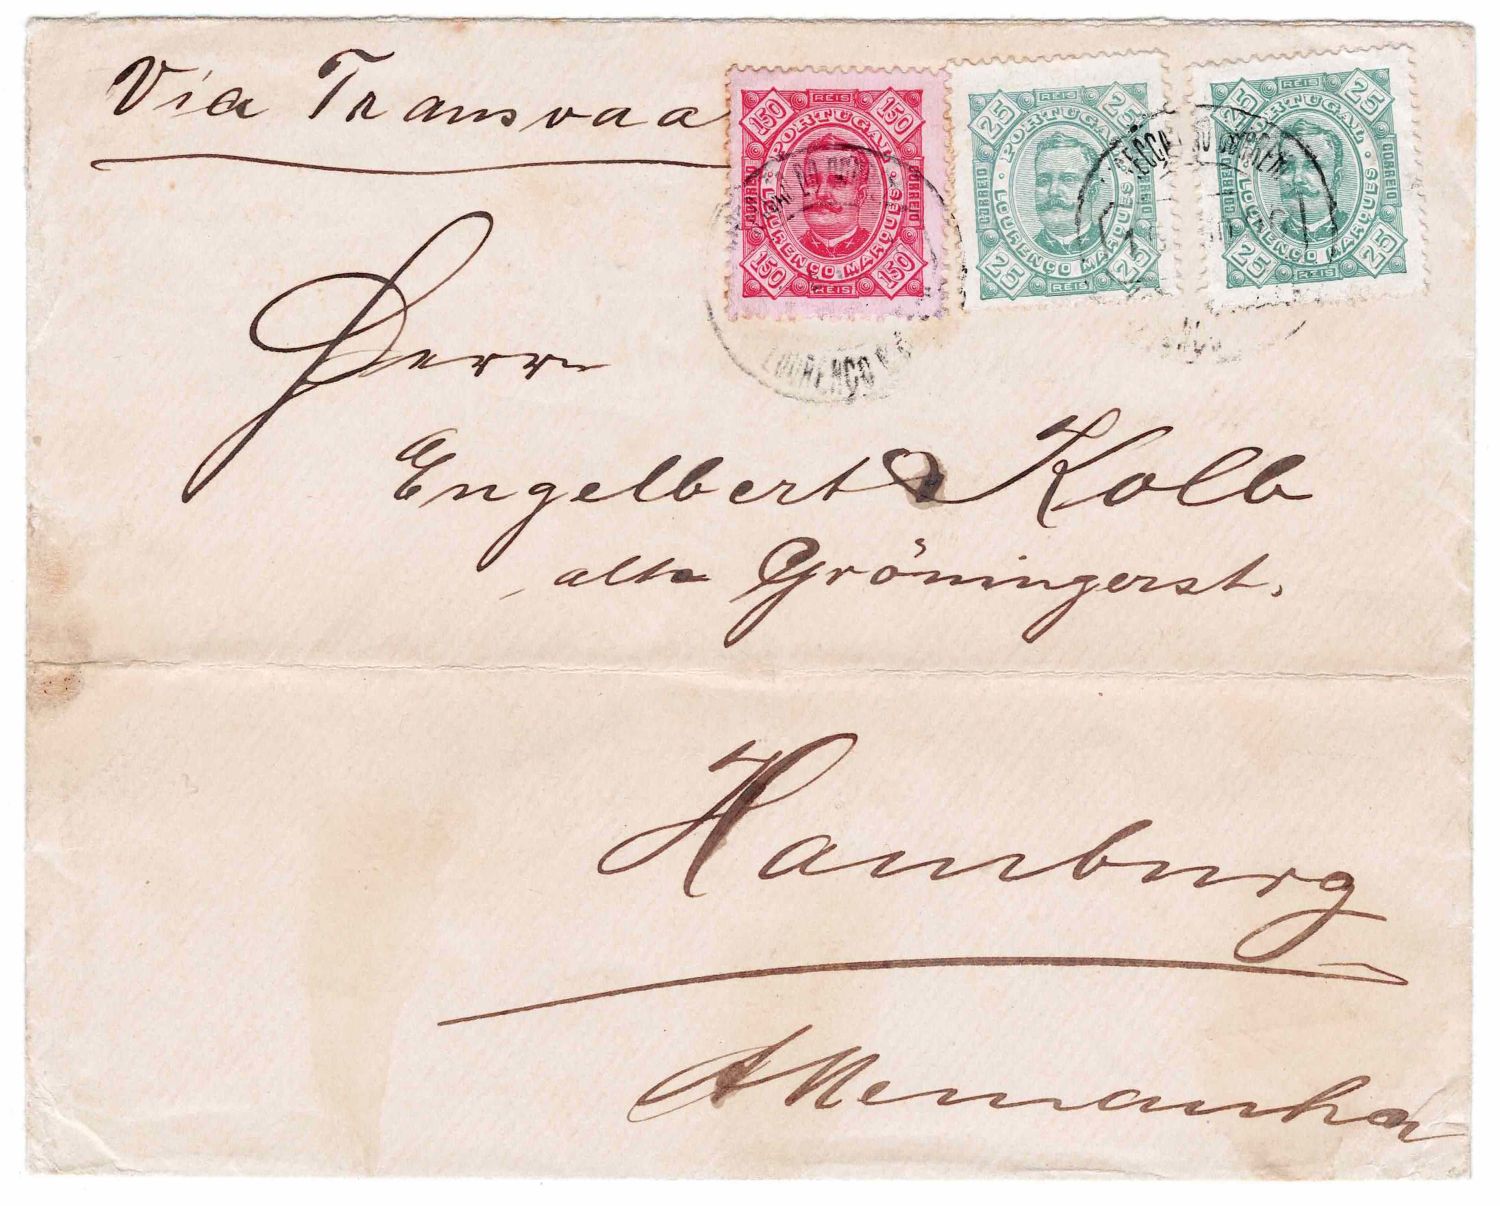 Via Transvaa
REIS
150 150
PORTUGAL
CORREIO CORREIO
LOURENÇO MARQUES
150 150
REIS
REIS
25 25
PORTUGAL
CORREIO
LOURENÇO MARQUES
25 25
REIS
REIS
25 25
PORTUGAL
CORREIO CORREIO
LOURENÇO MARQUES
25 25
REIS
LOURENÇO
Herrn
Engelbert Kolb
alte Gröningerst.
Hamburg
Allemanha